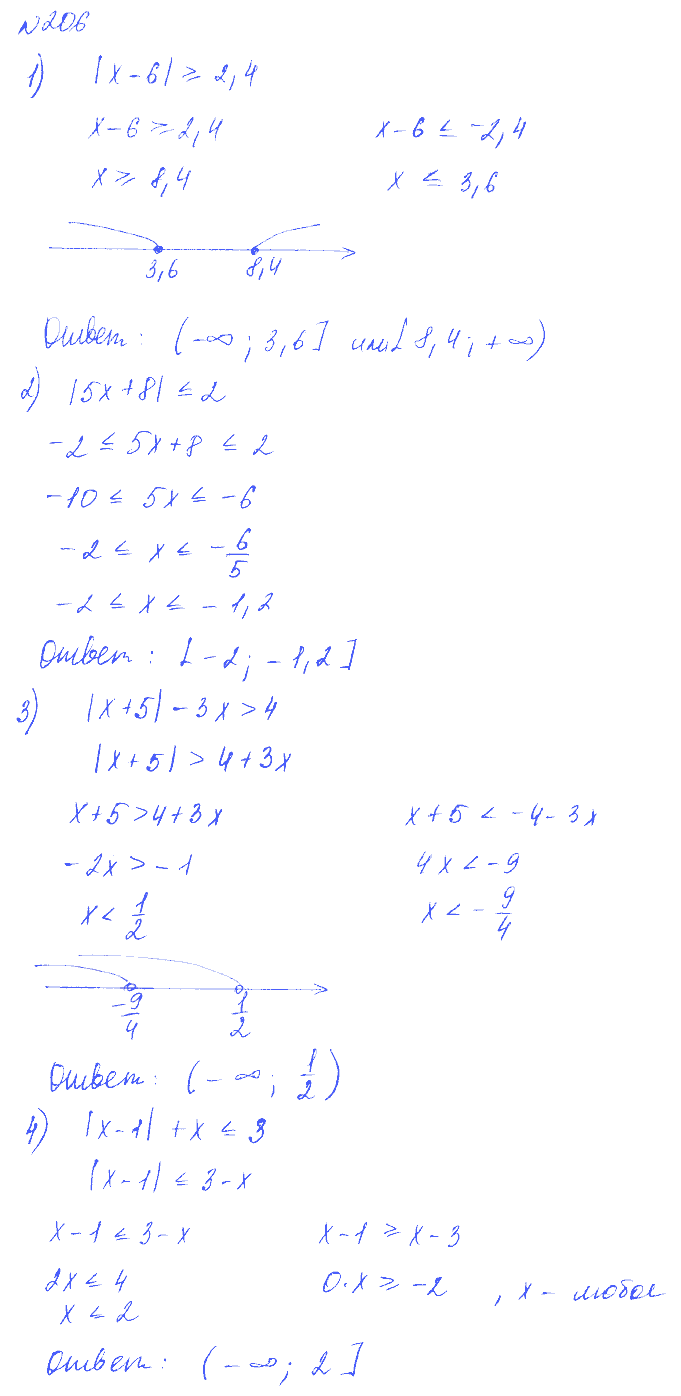 №206
1) |x-6| ≥ 2,4
x-6 ≥ 2,4 x-6 ≤ -2,4
x ≥ 8,4 x ≤ 3,6
3,6 8,4
Ответ: (-∞; 3,6] или [8,4; +∞)
2) |5x+8| ≤ 2
-2 ≤ 5x+8 ≤ 2
-10 ≤ 5x ≤ -6
-2 ≤ x ≤ -6/5
-2 ≤ x ≤ -1,2
Ответ: [-2; -1,2]
3) |x+5| - 3x > 4
|x+5| > 4+3x
x+5 > 4+3x x+5 < -4-3x
-2x > -1 4x < -9
x < 1/2 x < -9/4
-9/4 1/2
Ответ: (-∞; 1/2)
4) |x-1| + x ≤ 3
|x-1| ≤ 3-x
x-1 ≤ 3-x x-1 ≥ x-3
2x ≤ 4 0·x ≥ -2, x - любое
x ≤ 2
Ответ: (-∞; 2]